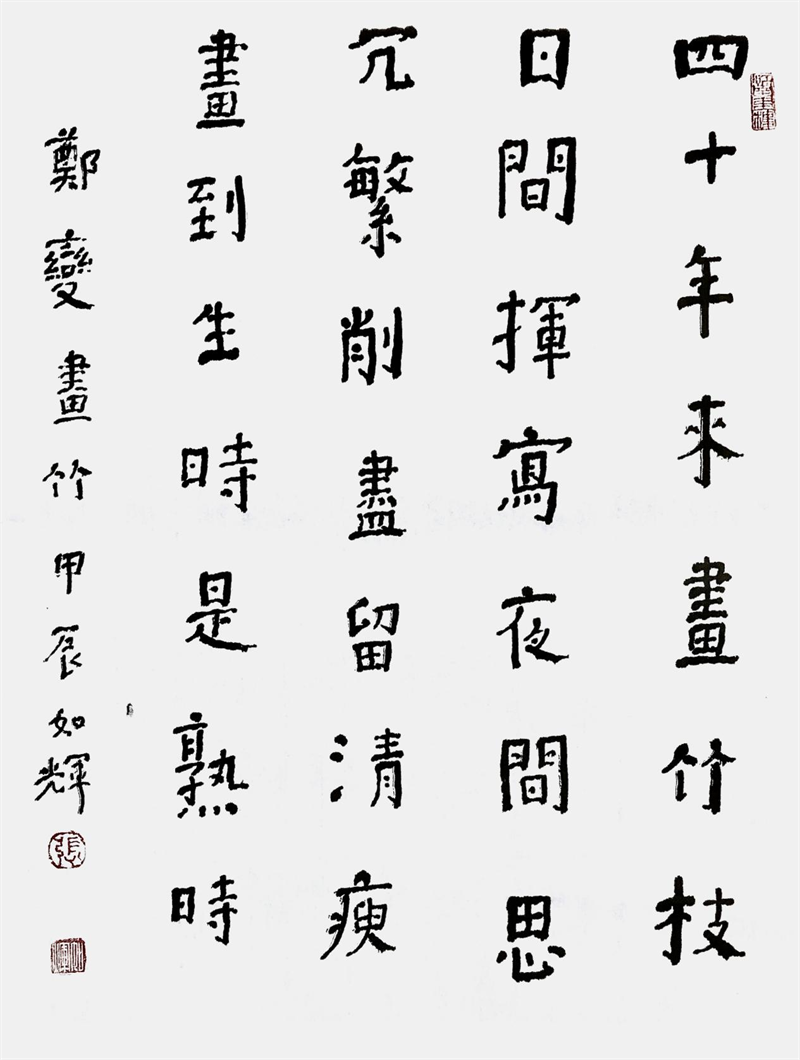 四十年來畫竹枝
日間揮寫夜間思
冗繁削盡留清瘦
畫到生時是熟時
鄭變畫竹甲辰如輝
張